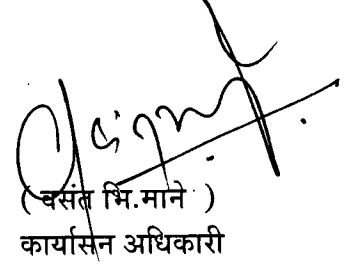 ( वसंत भि.माने )
कार्यासन अधिकारी